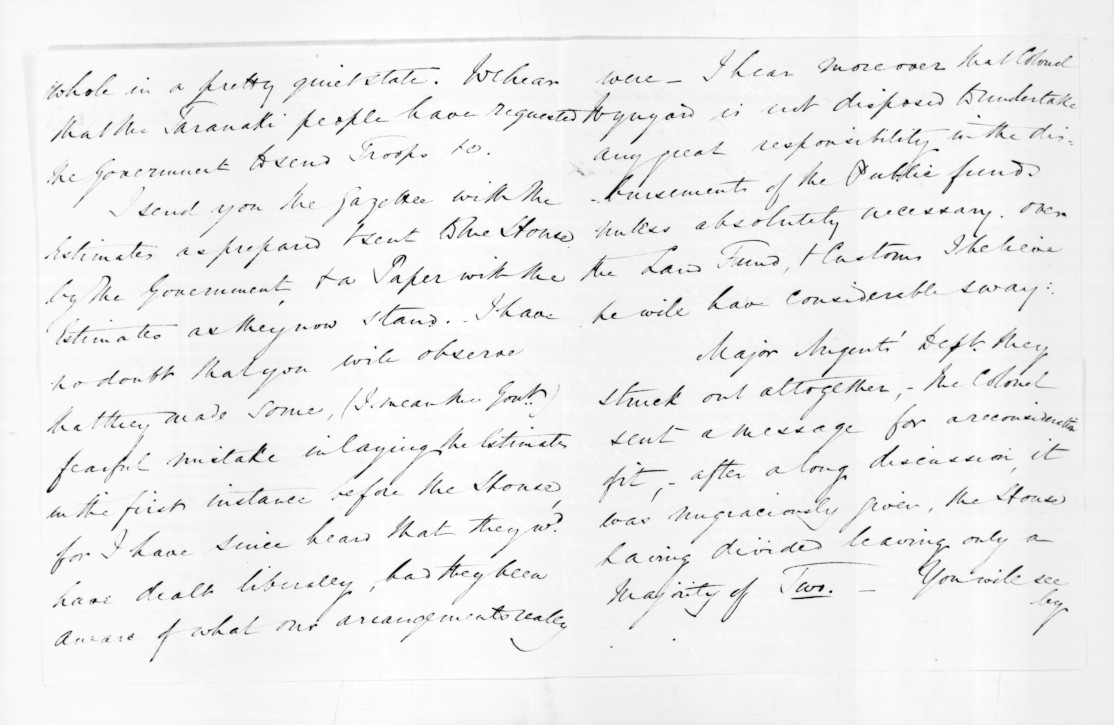 whole in a pretty quiet state. We hear
that the Taranaki people have requested
the Government to send Troops to.
I send you the Gazette with the
Estimates as prepared & sent to the House
by the Government, & a Paper with the
Estimates as they now stand. I have
no doubt that you will observe
that they made some, (I mean the Govt.)
fearful mistake in laying the Estimates
in the first instance before the House,
for I have since heard that they wd.
have dealt liberally, had they been
aware of what our arrangements really
were – I hear moreover that Colonel
Wynyard is not disposed to undertake
any great responsibility in the dis-
-bursements of the Public funds
unless absolutely necessary. over
the Land Fund, & Customs I believe
he will have considerable sway:.
Major Nugents' Dept. they
struck out altogether, – the Colonel
sent a message for a reconsideration
of it, – after a long discussion, it
was ungraciously given, the House
having divided leaving only a
Majority of Two. – You will see
by